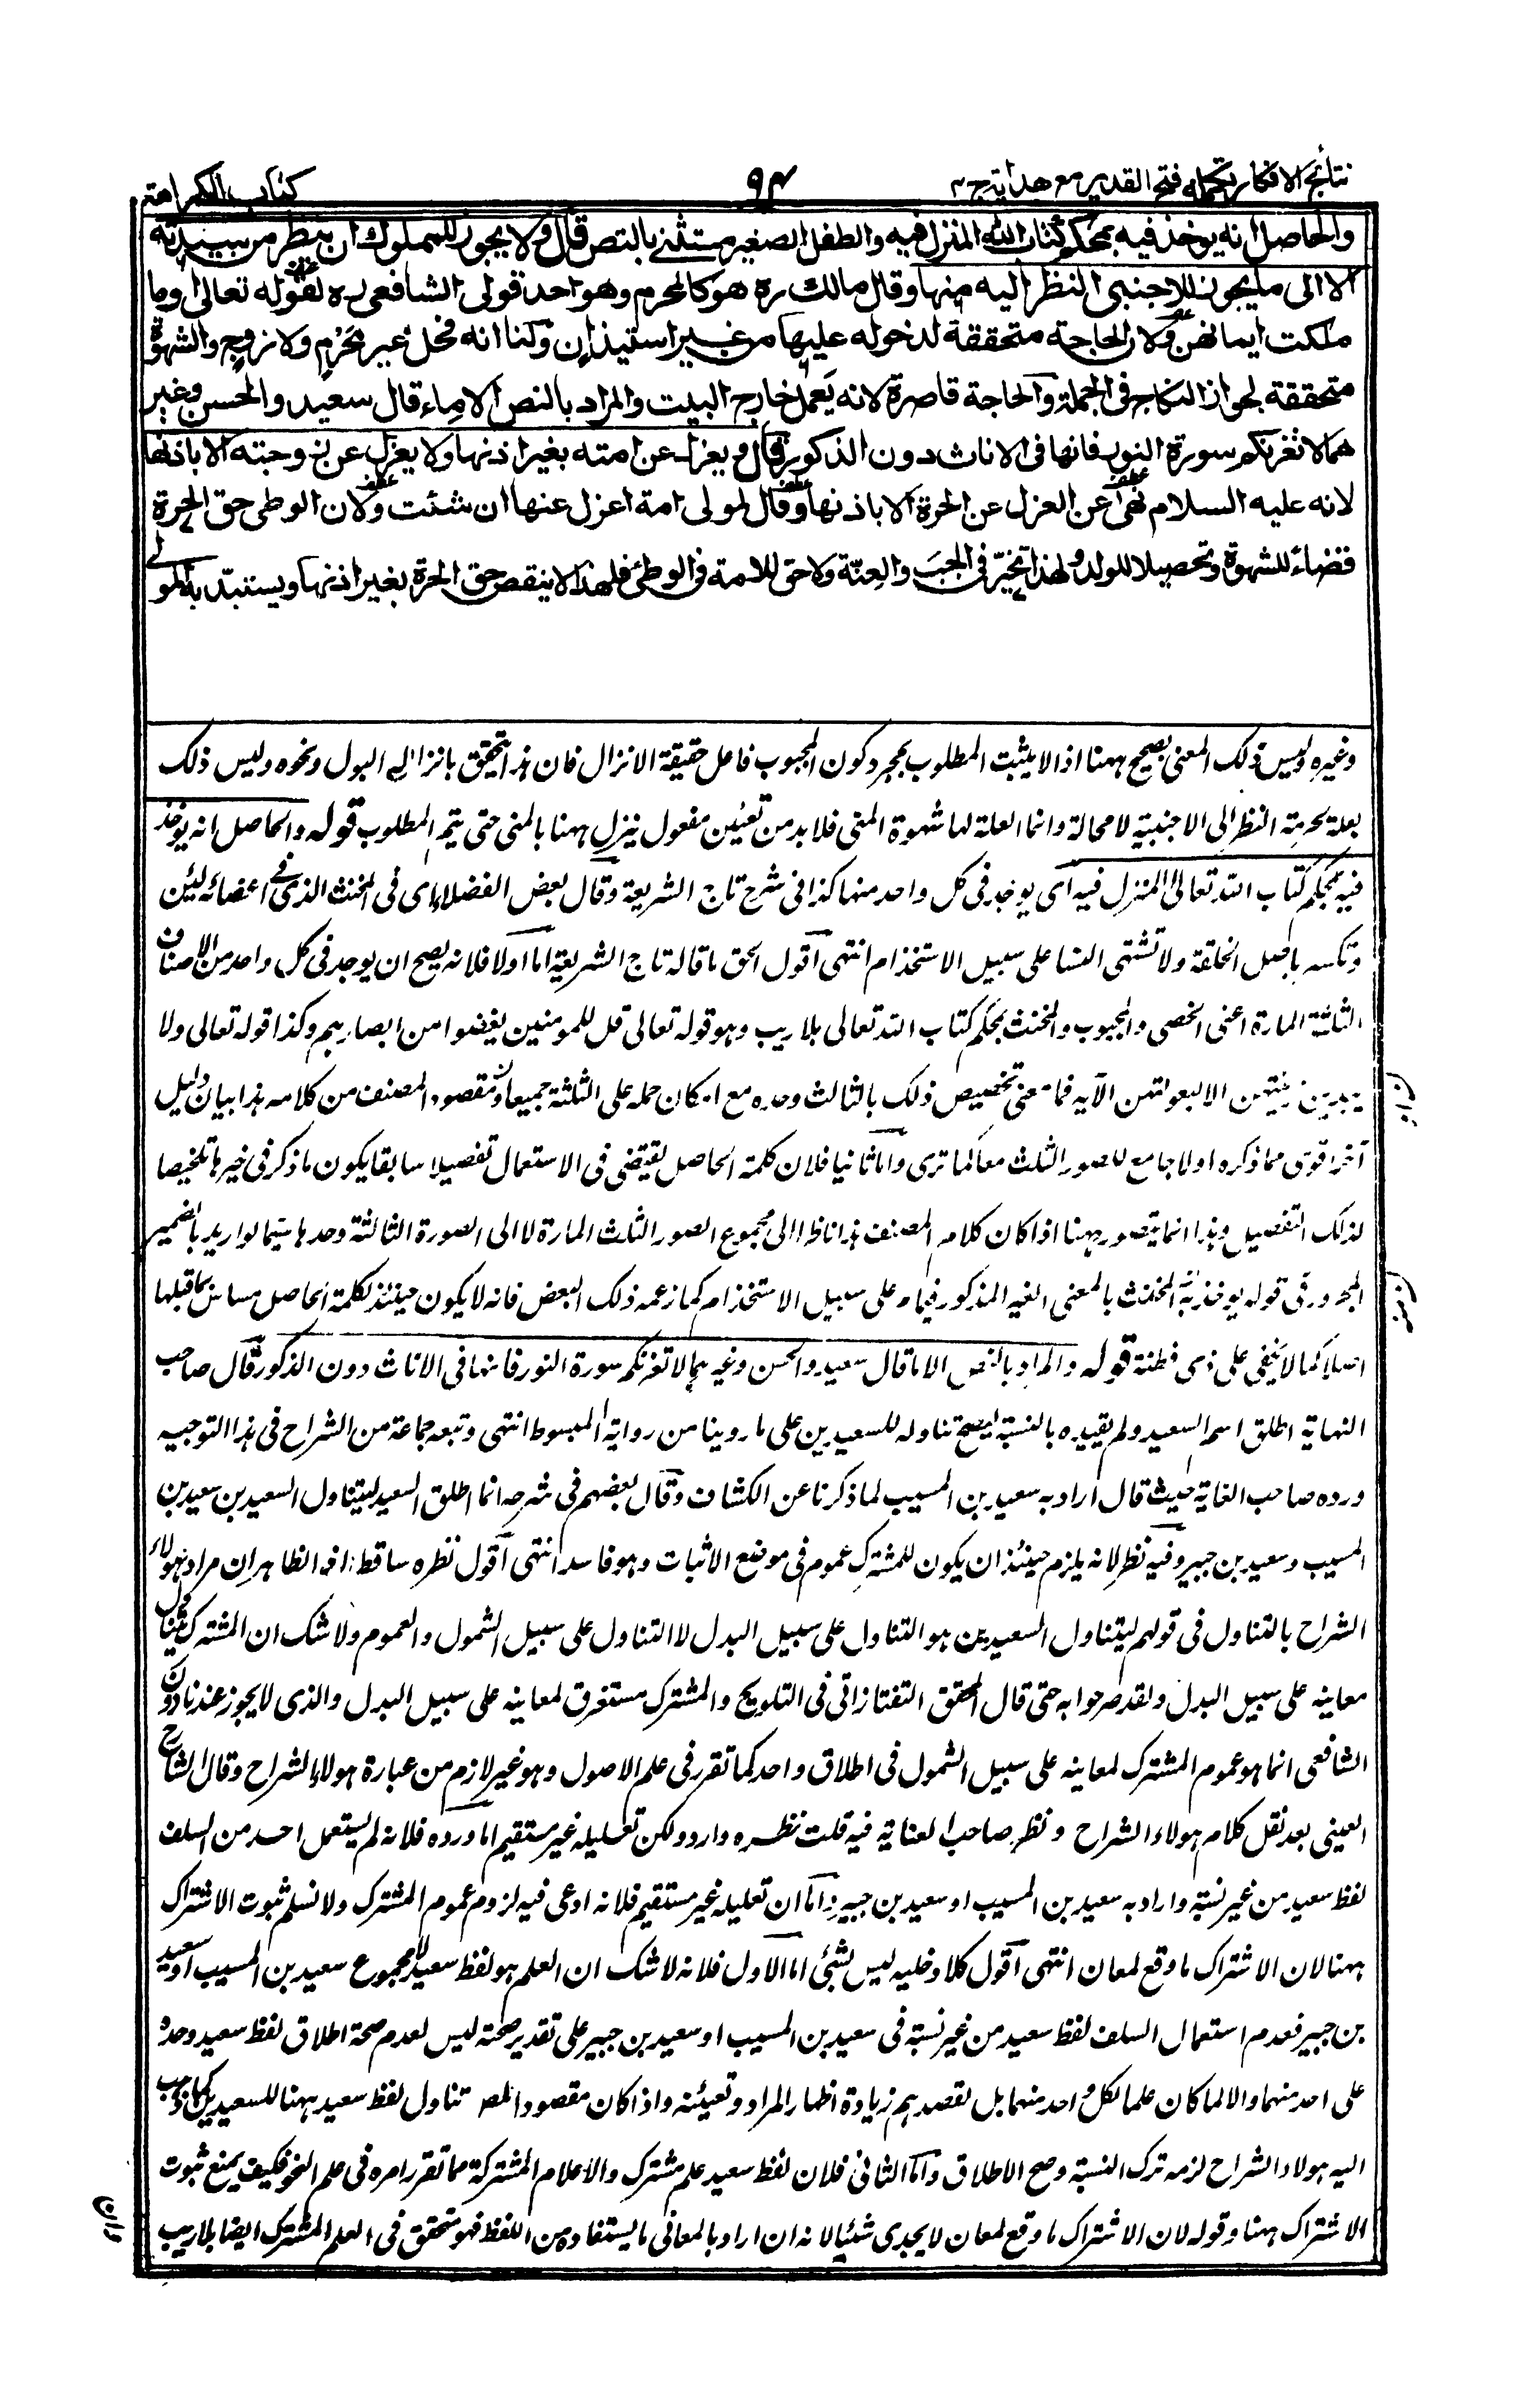 نتائج الافكار تكمله فتح القدير مع هداية ج ٤
٩٤
كتاب الكراهة
والحاصل انه يوخذ فيه بمحكم كتاب الله المنزل فيه والطفل الصغير مستثنى بالنص قال ولا يجوز للمملوك ان ينظر من سيدته
الا الى ما يجوز للاجنبي النظر اليه منها وقال مالك ره هو كالمحرم وهو احد قولى الشافعى ره لقوله تعالى او ما
ملكت ايمانهن ولان الحاجة متحققة لدخوله عليها من غير استيذان ولنا انه فحل غير محرم ولا زوج والشهوة
متحققة لجواز النكاح فى الجملة والحاجة قاصرة لانه يعمل خارج البيت والمراد بالنص الاماء قال سعيد والحسن وغير
هما لا تغرنكم سورة النور فانها فى الاناث دون الذكور قال ويعزل عن امته بغير اذنها ولا يعزل عن زوجته الا باذنها
لانه عليه السلام نهى عن العزل عن الحرة الا باذنها وقال لمولى امة اعزل عنها ان شئت ولان الوطى حق الحرة
قضاء للشهوة وتحصيلا للولد ولهذا تخير فى الجب والعنة ولا حق للامة فى الوطئ فلهذا لا ينقص حق الحرة بغير اذنها ويستبد به المولے
وغيره وليس ذلك المعنى بصحيح ههنا اذ لا يثبت المطلوب بمجرد كون المجبوب فاعل حقيقة الانزال فان هذا يتحقق بانزاله البول ونحوه وليس ذلك
بعلة لحرمة النظر الى الاجنبية لا محالة وانما العلة لها شهوة المنى فلا بد من تعيين مفعول ينزل ههنا بالمنى حتى يتم المطلوب قوله والحاصل انه يوخذ
فيه بمحكم كتاب الله تعالى المنزل فيه اى يوخذ فى كل واحد منها كذا فى شرح تاج الشريعة وقال بعض الفضلاء اى فى المخنث الذى فى اعضائه لين
وتكسر باصل الخلقة ولا تشتهى النسا على سبيل الاستخدام انتهى اقول الحق ما قاله تاج الشريعة اما اولا فلانه يصح ان يوجد فى كل واحد من الاصناف
الثلثة المارة اعنى الخصى والمجبوب والمخنث بمحكم كتاب الله تعالى بلا ريب وهو قوله تعالى قل للمومنين يغضوا من ابصارهم وكذا قوله تعالى ولا
يبدين زينتهن الا لبعولتهن الآية فما معنى تخصيص ذلك بالثالث وحده مع امكان حمله على الثلثة جميعا ومقصود المصنف من كلامه هذا بيان دليل
آخر اقوى مما ذكره اولا جامع للصور الثلث معا كما ترى واما ثانيا فلان كلمة الحاصل تقتضى فى الاستعمال تفصيلا سابقا يكون ما ذكر فى خيرها تلخيصا
لذلك التفصيل وهذا انما يتصور ههنا اذا كان كلام المصنف هذا ناظرا الى مجموع الصور الثلث المارة لا الى الصورة الثالثة وحدها سيما لو اريد بالضمير
المجرور فى قوله يوخذ فيه المخنث بالمعنى الغير المذكور فيما على سبيل الاستخدام كما زعمه ذلك البعض فانه لا يكون حينئذ لكلمة الحاصل مساس بما قبلها
اصلا كما لا يخفى على ذى فطنة قوله والمراد بالنص الاما قال سعيد والحسن وغيرهما لا تغرنكم سورة النور فانها فى الاناث دون الذكور قال صاحب
النهاية اطلق اسم السعيد ولم يقيده بالنسبة ليصح تناوله للسعيدين على ما روينا من رواية المبسوط انتهى وتبعه جماعة من الشراح فى هذا التوجيه
ورده صاحب الغاية حيث قال اراد به سعيد بن المسيب لما ذكرنا عن الكشاف وقال بعضهم فى شرحه انما اطلق السعيد ليتناول السعيدين سعيد بن
المسيب وسعيد بن جبير وفيه نظر لانه يلزم حينئذ ان يكون للمشترك عموم فى موضع الاثبات وهو فاسد انتهى اقول نظره ساقط اذ الظاهر ان مراد هولاء
الشراح بالتناول فى قولهم ليتناول السعيدين هو التناول على سبيل البدل لا التناول على سبيل الشمول والعموم ولا شك ان المشترك يتناول
معانيه على سبيل البدل ولقد صرحوا به حتى قال المحقق التفتازانى فى التلويح والمشترك مستغرق لمعانيه على سبيل البدل والذى لا يجوز عندنا دون
الشافعى انما هو عموم المشترك لمعانيه على سبيل الشمول فى اطلاق واحد كما تقرر فى علم الاصول وهو غير لازم من عبارة هولاء الشراح وقال الشارح
العينى بعد نقل كلام هولاء الشراح ونظر صاحب العناية فيه قلت نظره وارد ولكن تعليله غير مستقيم اما وروده فلانه لم يستعمل احد من السلف
لفظ سعيد من غير نسبة واراد به سعيد بن المسيب او سعيد بن جبير واما ان تعليله غير مستقيم فلانه ادعى فيه لزوم عموم المشترك ولا نسلم ثبوت الاشتراك
ههنا لان الاشتراك ما وقع لمعان انتهى اقول كلا دخليه ليس بشئ اما الاول فلانه لا شك ان العلم هو لفظ سعيد لا مجموع سعيد بن المسيب او سعيد
بن جبير فعدم استعمال السلف لفظ سعيد من غير نسبة فى سعيد بن المسيب او سعيد بن جبير على تقدير صحته ليس لعدم صحة اطلاق لفظ سعيد وحده
على احد منهما والا لما كان علما لكل واحد منهما بل لقصدهم زيادة اظهار المراد وتعيينه واذا كان مقصود المص تناول لفظ سعيد ههنا للسعيدين كما ذهب
اليه هولاء الشراح لزمه ترك النسبة وصح الاطلاق واما الثانى فلان لفظ سعيد علم مشترك والاعلام المشتركة مما تقرر امره فى علم النحو فكيف يمنع ثبوت
الاشتراك ههنا وقوله لان الاشتراك ما وقع لمعان لا يجدى شئيا لانه ان اراد بالمعانى ما يستفاد من اللفظ فهو متحقق فى العلم المشترك ايضا بلا ريب